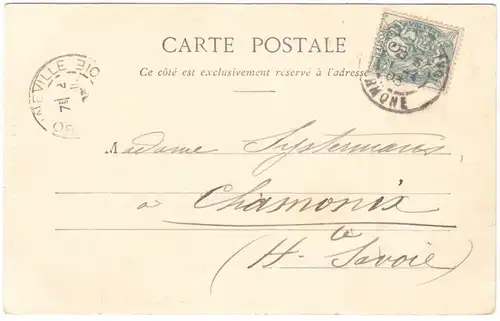 CARTE POSTALE
Ce côté est exclusivement réservé à l'adresse
Madame Systermans
à Chamonix
(H. Savoie)